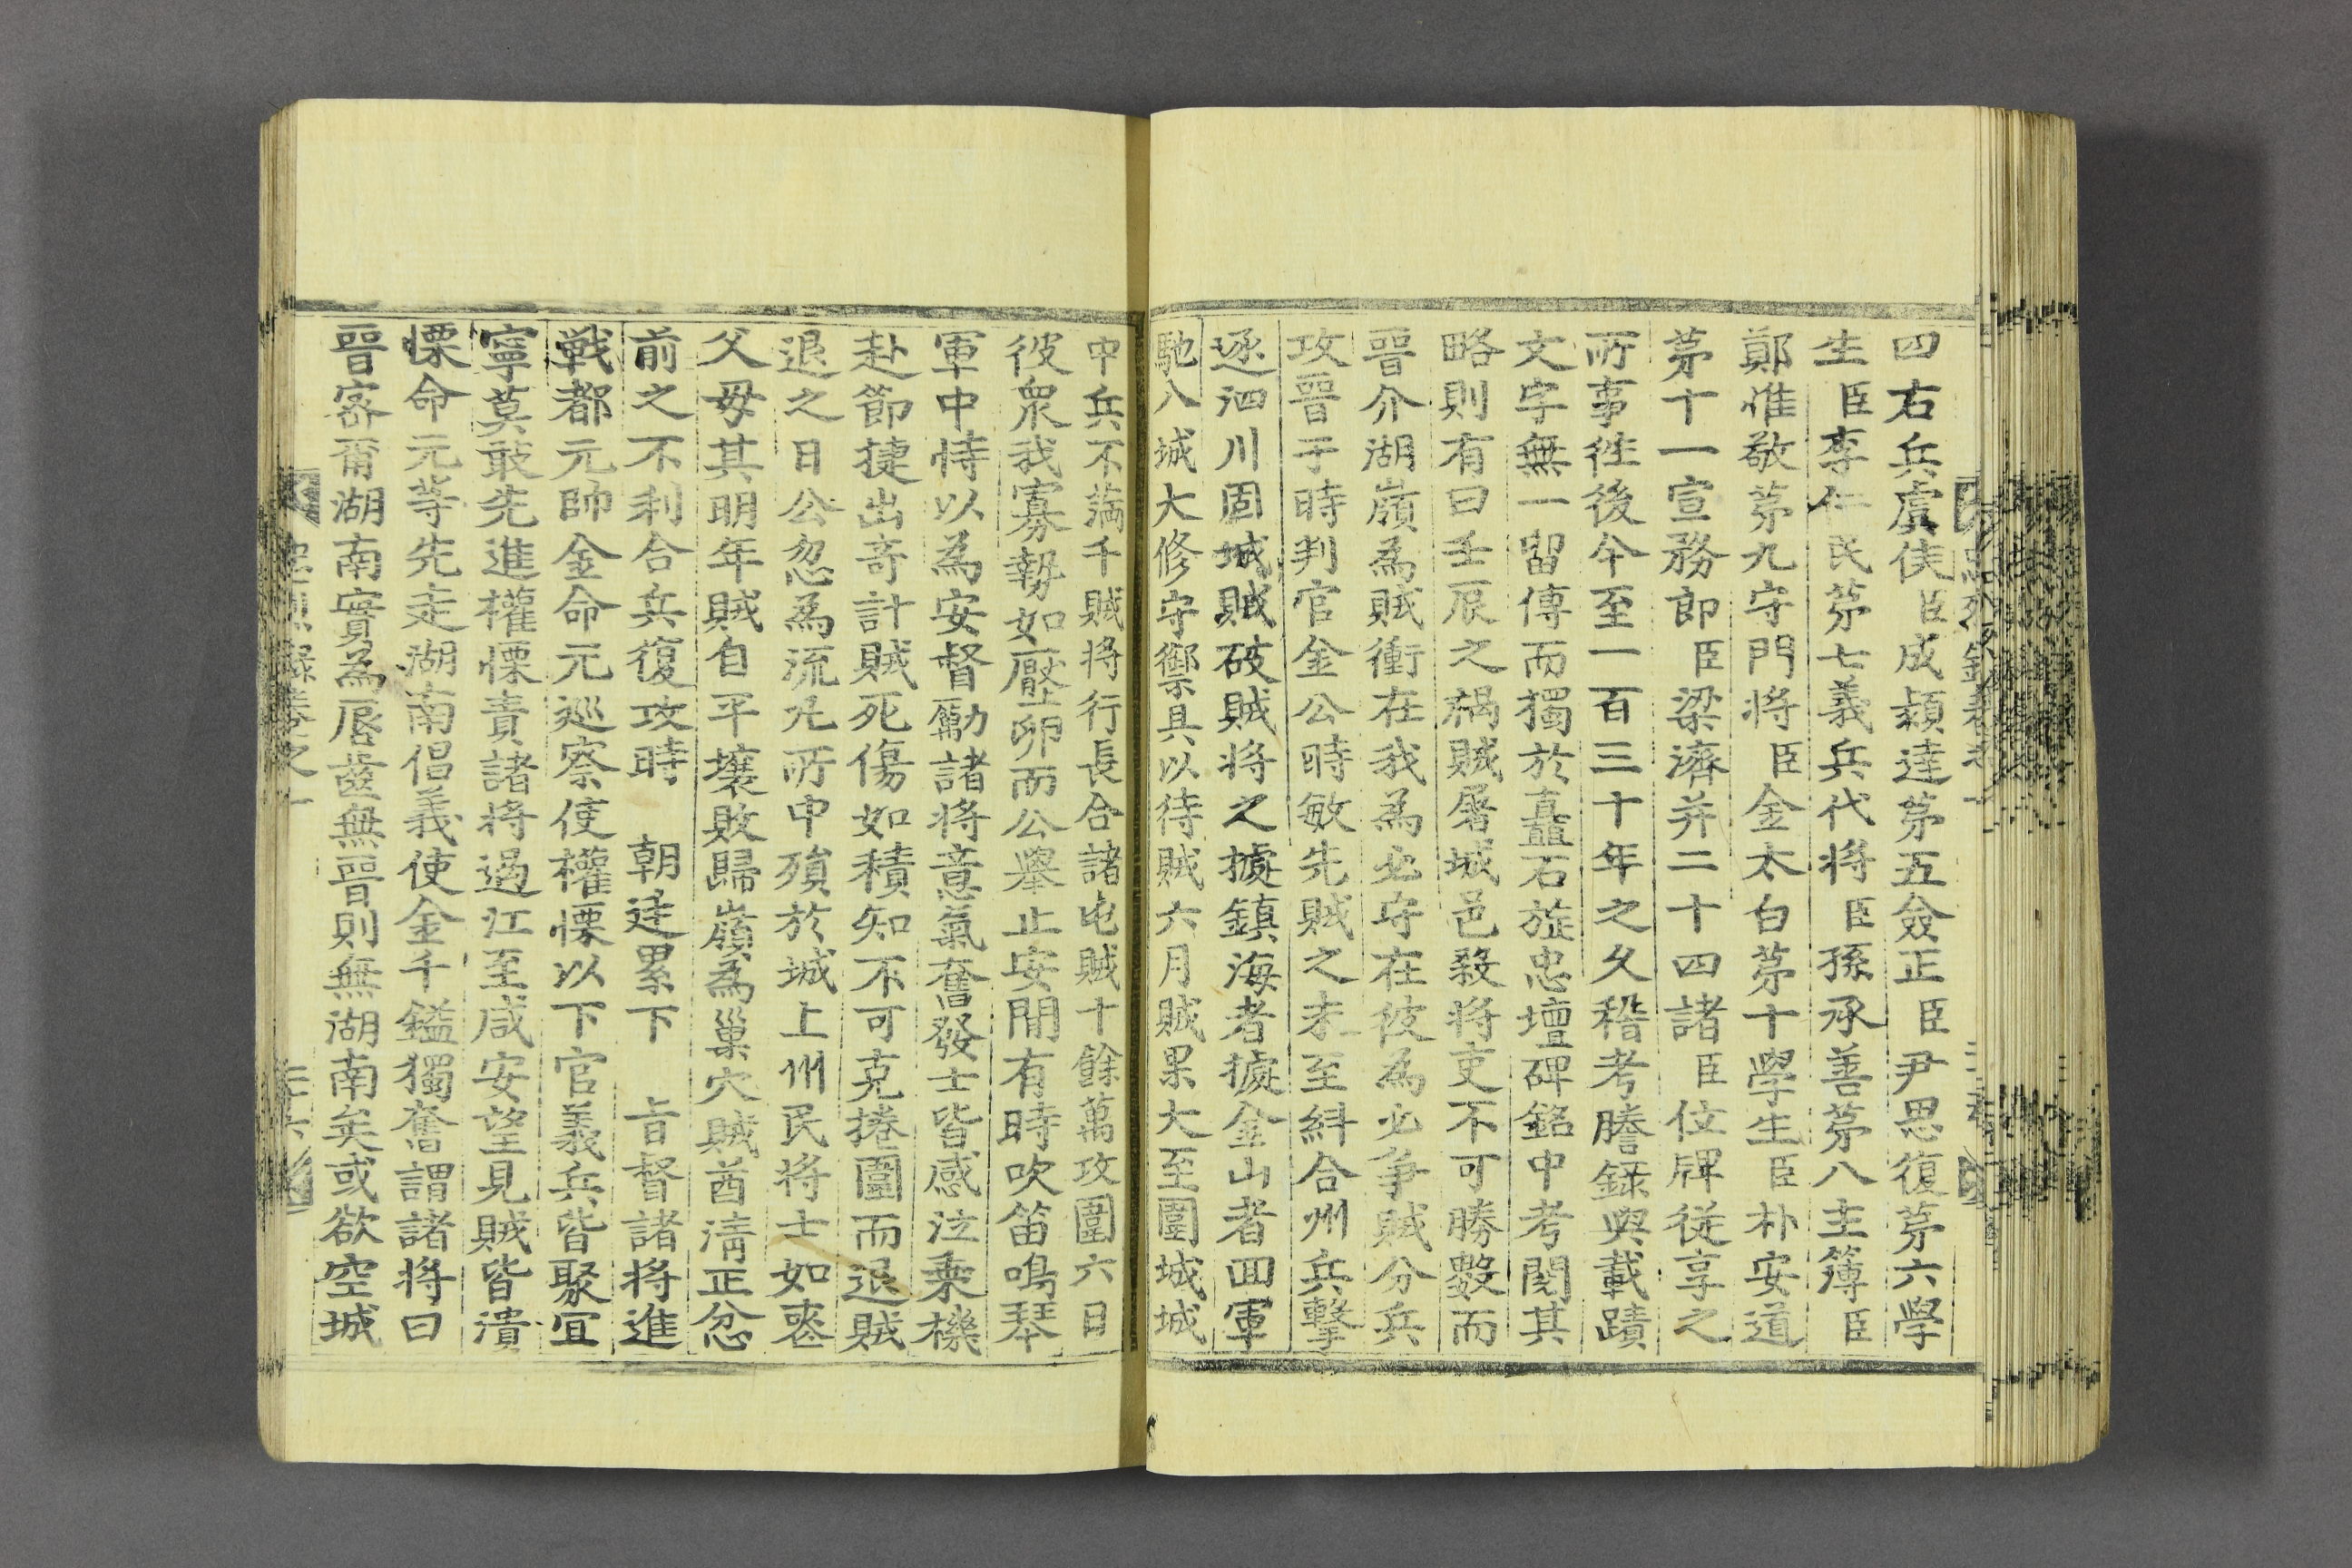 四右兵虞侯臣成穎達苐五僉正臣尹思復苐六學
生臣李仁民苐七義兵代将臣孫承善苐八主簿臣
鄭惟敬苐九守門将臣金太白苐十學生臣朴安道
苐十一宣務郎臣梁濟并二十四諸臣位牌従享之
所事徃後今至一百三十年之久稽考謄錄與載蹟
文字無一留傳而獨於矗石㫌忠壇碑銘中考閱其
略則有曰壬辰之禍賊屠城邑殺将吏不可勝數而
晉介湖嶺為賊衝在我為必守在彼為必爭賊分兵
攻晉于時判官金公時敏先賊之未至糾合州兵擊
逐泗川固城賊破賊将之㨿鎮海者㨿金山者回軍
馳入城大修守禦具以待賊六月賊果大至圍城城
中兵不滿千賊将行長合諸屯賊十餘萬攻圍六日
彼衆我寡勢如壓卵而公舉止安閒有時吹笛鳴琴
軍中恃以為安督勵諸将意氣奮發士皆感泣乗機
赴節捷出奇計賊死傷如積知不可克捲圍而退賊
退之日公忽為流丸所中殞於城上州民将士如喪
父母其明年賊自平壤敗歸嶺為巢穴賊酋淸正忿
前之不利合兵復攻時　朝廷累下　旨督諸将進
戦都元帥金命元巡察使權慄以下官義兵皆聚冝
寧莫敢先進權慄責諸将過江至咸安望見賊皆潰
慄命元等先走湖南倡義使金千鎰獨奮謂諸将曰
晉密甭湖南實為唇齒無晉則無湖南矣或欲空城